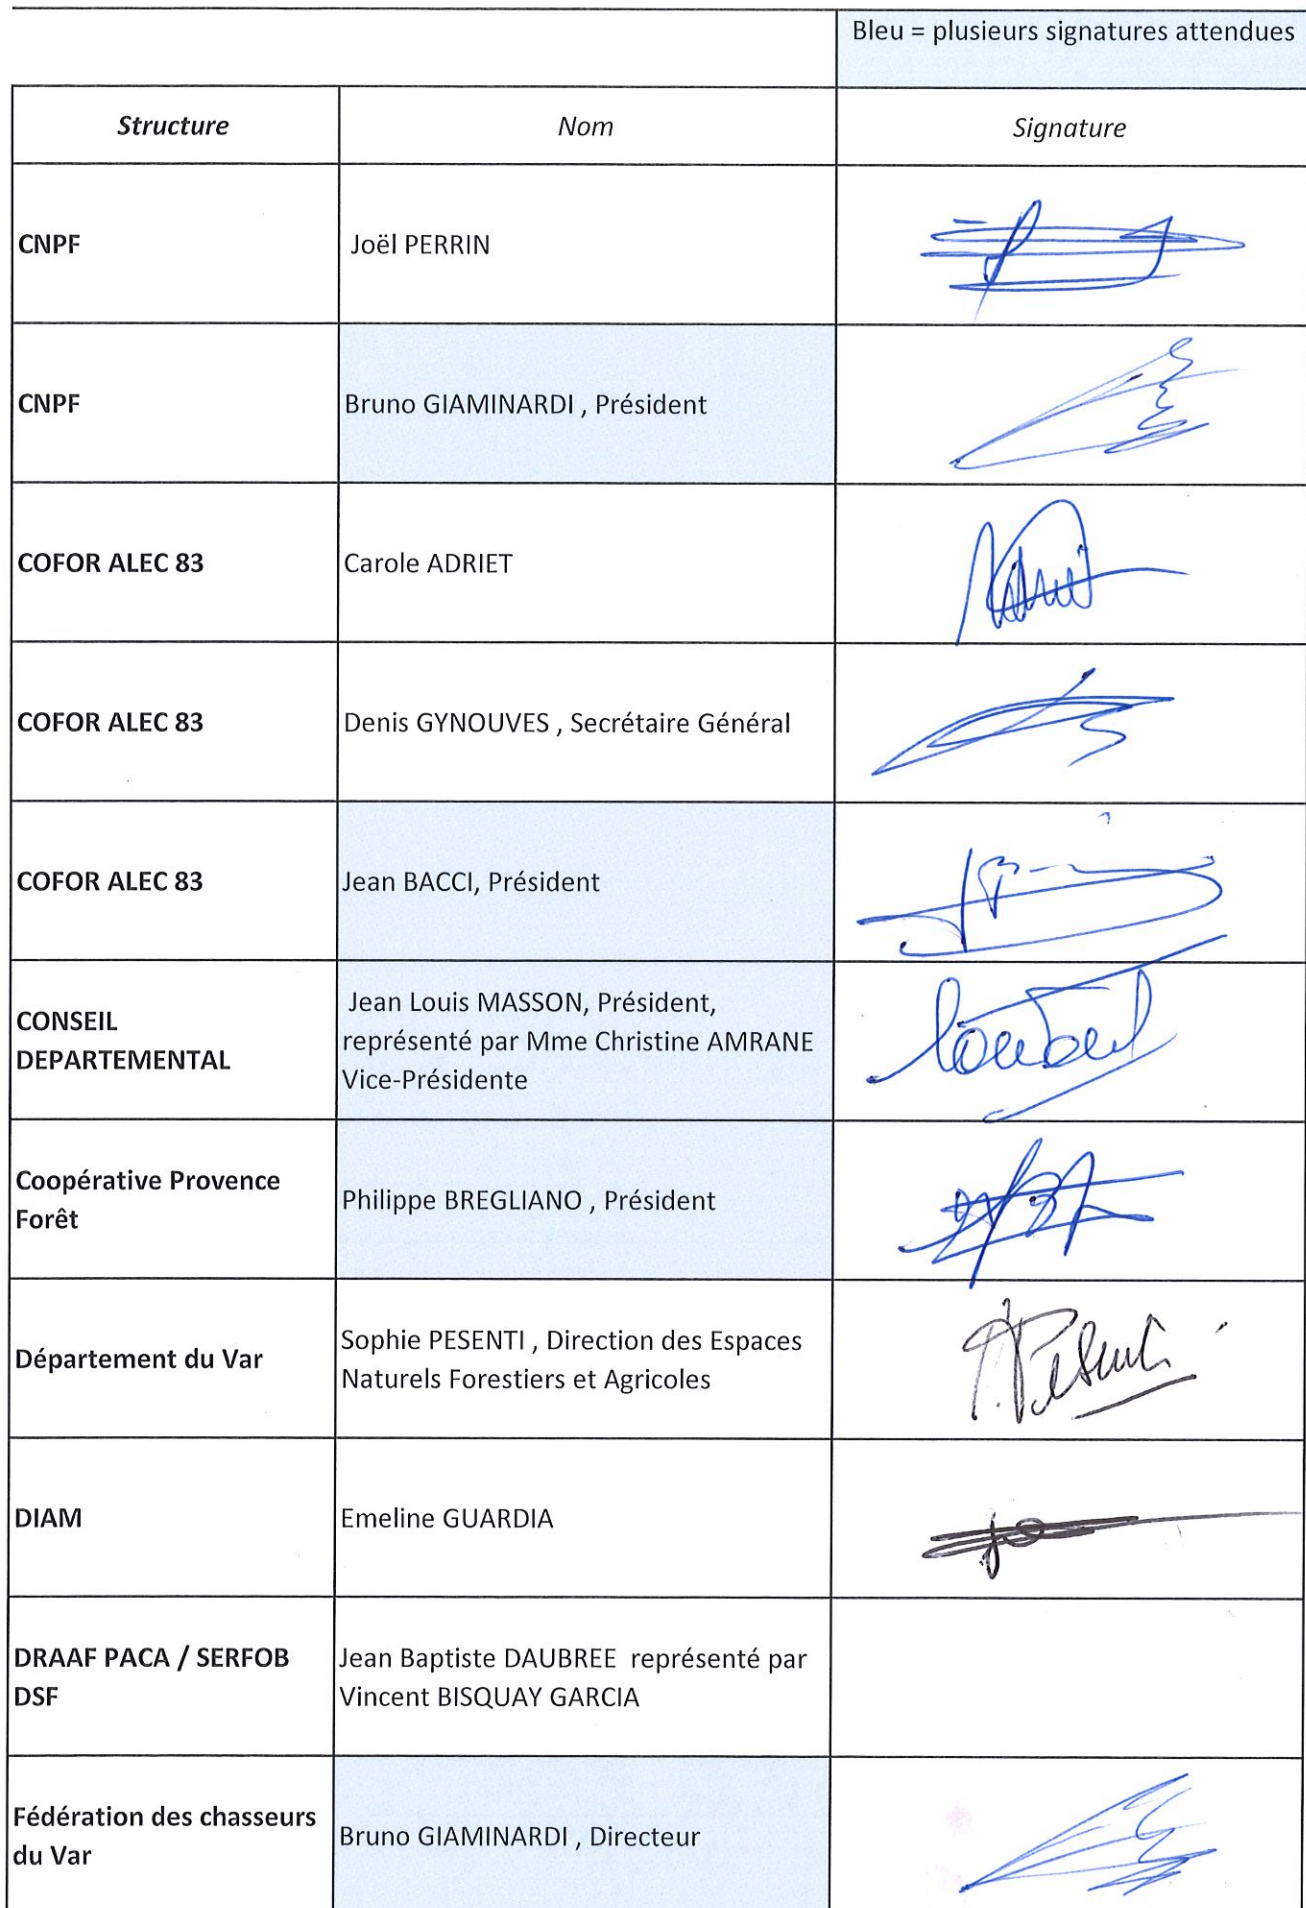 Bleu = plusieurs signatures attendues
Structure Nom Signature
CNPF Joël PERRIN
CNPF Bruno GIAMINARDI , Président
COFOR ALEC 83 Carole ADRIET
COFOR ALEC 83 Denis GYNOUVES , Secrétaire Général
COFOR ALEC 83 Jean BACCI, Président
CONSEIL
DEPARTEMENTAL
Jean Louis MASSON, Président,
représenté par Mme Christine AMRANE
Vice-Présidente
Coopérative Provence
Forêt
Philippe BREGLIANO , Président
Département du Var
Sophie PESENTI , Direction des Espaces
Naturels Forestiers et Agricoles
Pesenti
DIAM Emeline GUARDIA
DRAAF PACA / SERFOB
DSF
Jean Baptiste DAUBREE représenté par
Vincent BISQUAY GARCIA
Fédération des chasseurs
du Var
Bruno GIAMINARDI , Directeur